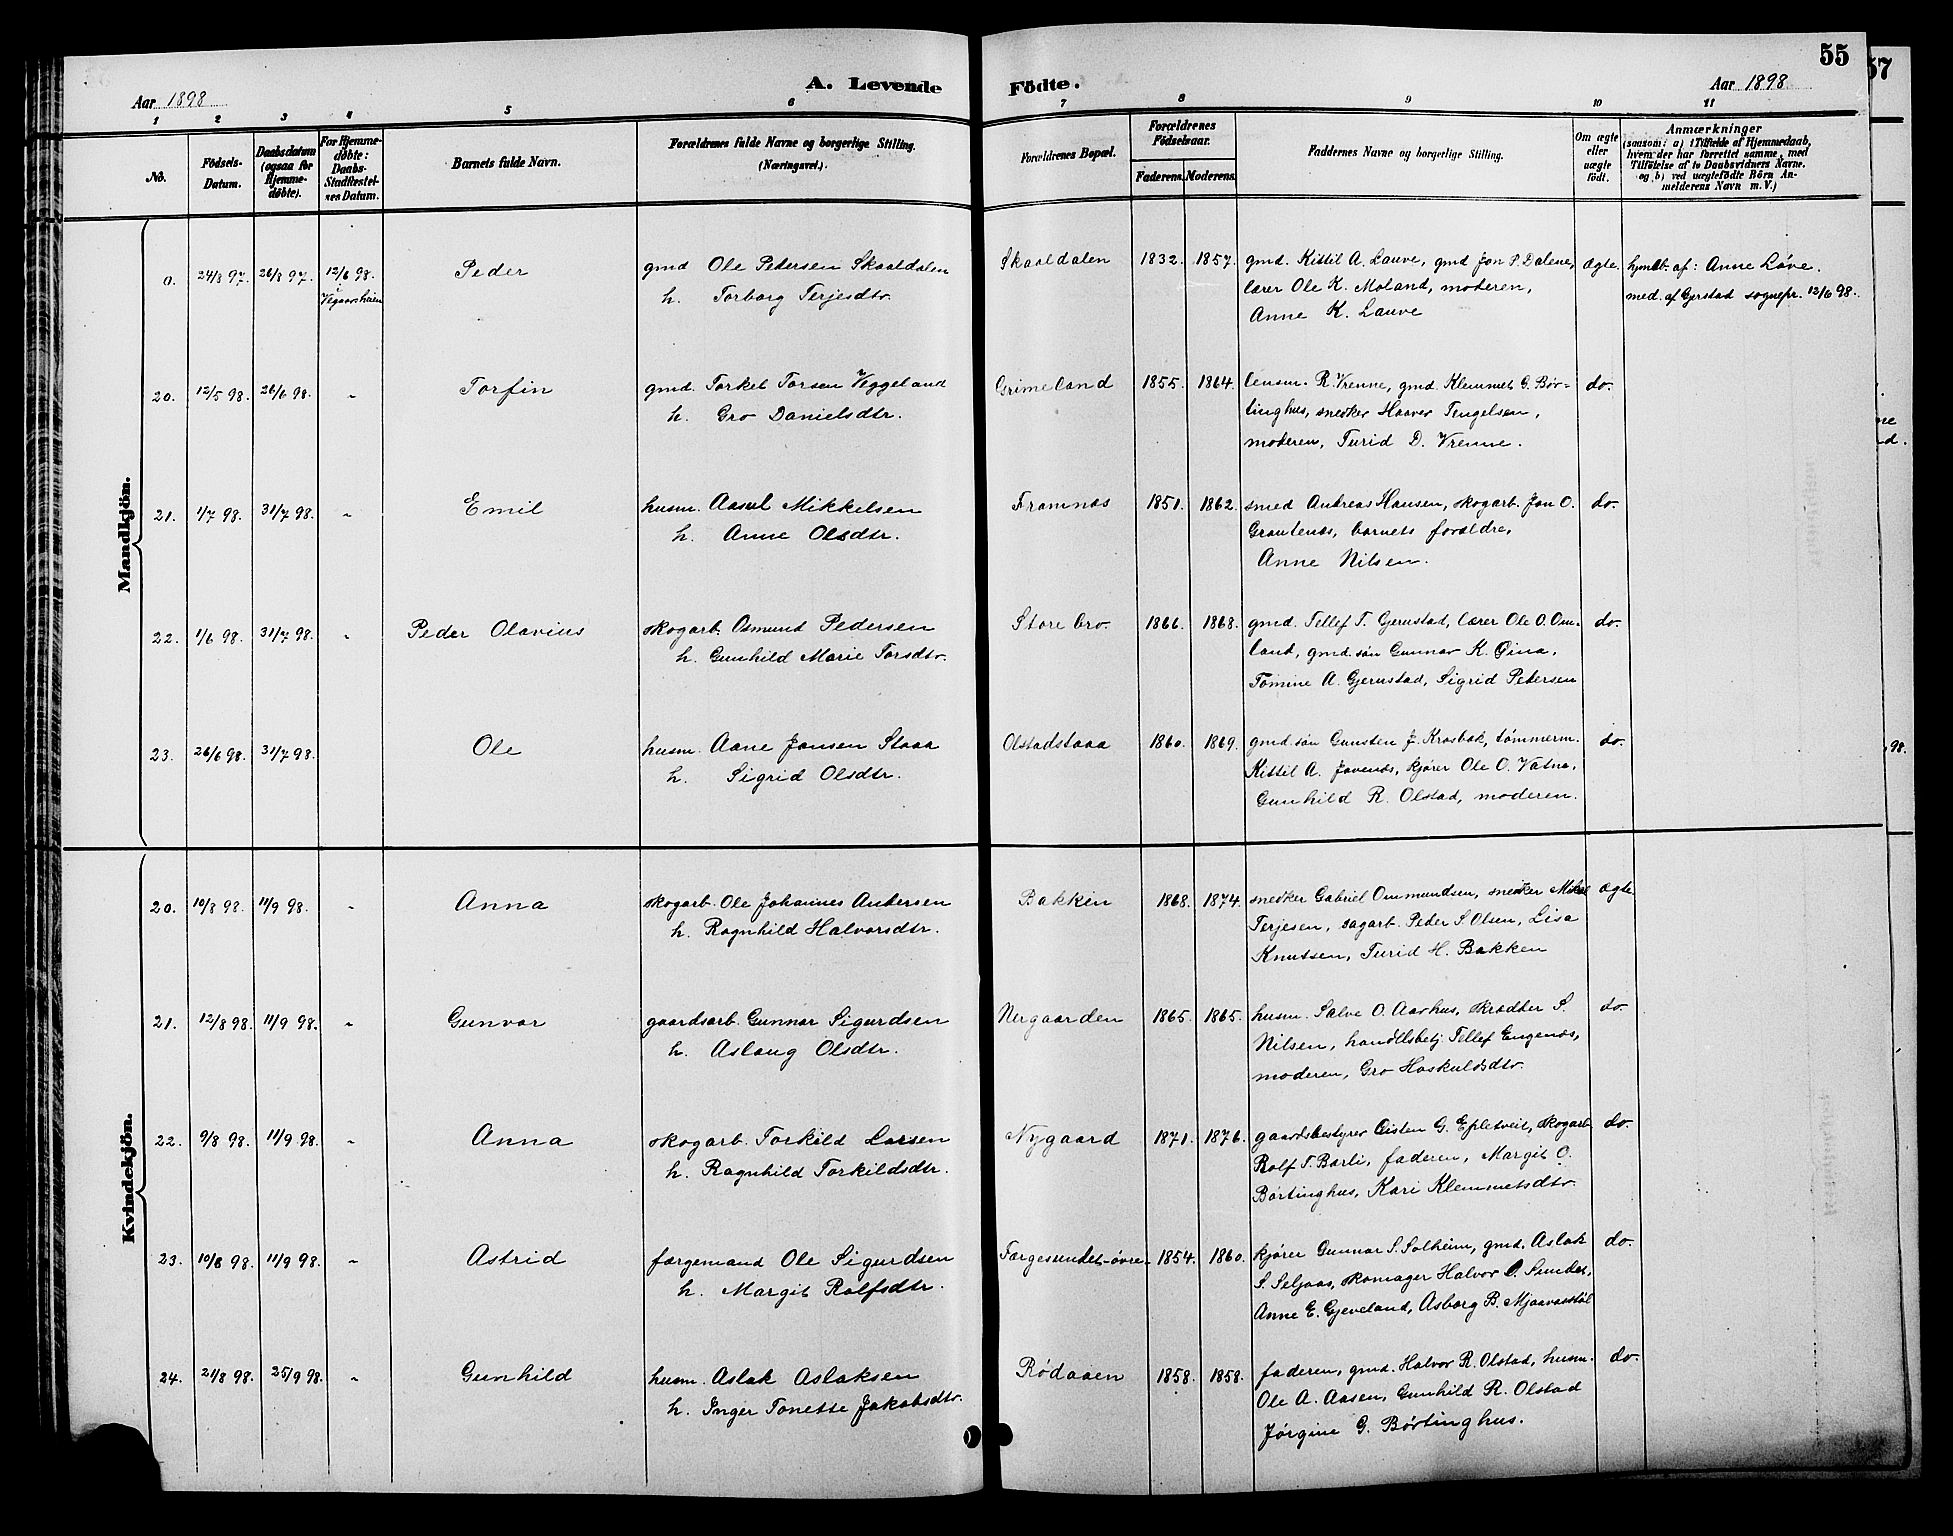 55
57
Aar 1898
A. Levende
Födte.
Aar 1898
1 2 3 4 5 6 7 8 9 10 11
No.
Födsels-Datum.
Daabsdatum (ogsaa for Hjemme-døbte).
For Hjemme-døbte: Daabs-Stadfæstel-sesDatum.
Barnets fulde Navn.
Forældrenes fulde Navne og borgerlige Stilling.
(Næringsvei.)
Forældrenes Bopæl.
Forældrenes Födselsaar.
Faderens. Moderens.
Faddernes Navne og borgerlige Stilling.
Om ægte eller uægte födt.
Anmærkninger
(saasom: a) i Tilfælde af Hjemmedaab,
hvem der har forrettet samme, med
Tilføielse af to Daabsvidners Navne.
og b) ved uægtefödte Börn An-
melderens Navn m. V.)
Mandkjön.
0. 24/8 97. 26/8 97. 12/6 98. Peder gmd Ole Pedersen Skaaldalen Skaaldalen 1832. 1857. gmd. Kittil A. Lauve, gmd Jon P. Dalene, ægte. hjmdb. af: Anne Løve.
Vegaarsheien h. Torborg Terjesdtr. lærer Ole K. Moland, moderen, med. af Gjerstad sognepr. 12/6 98.
Anne K. Lauve
20. 12/5 98. 26/6 98. " Torfin gmd. Torkel Torsen Veggeland Grimeland 1855. 1864. lensm. R. Vrenne, gmd. Klemmet G. Bør- do.
h. Gro Danielsdtr. tinghus, snedker Haaver Tengelsen,
moderen, Turid D. Vrenne.
21. 1/7 98. 31/7 98. " Emil husm. Aasul Mikkelsen Framnæs 1851. 1862. smed Andreas Hansen, skogarb. Jon O. do.
h. Anne Olsdtr. Grautenæs, barnets forældre,
Anne Nilsen.
22. 1/6 98. 31/7 98. " Peder Olavius skogarb. Osmund Pedersen Storebro 1866. 1868. gmd. Tellef T. Gjerustad, lærer Ole O. Om- do.
h. Gunhild Marie Torsdtr. land, gmd. søn Gunnar K. Eina,
Tomine A. Gjerustad, Sigrid Petersen
23. 26/6 98. 31/7 98. Ole husm. Aane Jonsen Staaa Olstadstaaa 1860. 1869. gmd. søn Gunsten J. Krosbak, tømmerm. do.
h. Sigrid Olsdtr. Kittil A. Jovenæs, kjører Ole O. Vatne,
Gunhild R. Olstad, moderen.
Kvindekjön.
20. 10/8 98. 11/9 98. " Anna skogarb. Ole Johannes Andersen Bakken 1868. 1874. snedker Gabriel Ommundsen, snedker Mikal ægte
h. Ragnhild Halvorsdtr. Terjesen, sagarb. Peder S. Olsen, Lisa
Knutsen, Turid H. Bakken
21. 12/8 98. 11/9 98. " Gunvor gaardsarb. Gunnar Sigurdsen Nergaarden 1865. 1865. husm. Salve O. Aarhus, skrædder S. do.
h. Aslaug Olsdtr. Nilsen, handelsbetj. Tellef Engenæs,
moderen, Gro Haskuldsdtr.
22. 9/8 98. 11/9 98. " Anna skogarb. Torkild Larsen Nygaard 1871. 1876. gaardsbestyrer Eisten G. Epletveit, skogarb. do.
h. Ragnhild Torkildsdtr. Rolf T. Barli, faderen, Margit O.
Børtinghus, Kari Klemmetsdtr.
23. 10/8 98. 11/9 98. " Astrid færgemand Ole Sigurdsen Færgesundet-övre 1854. 1860. kjører Gunnar S. Solheim, gmd. Aslak do.
h. Margit Rolfsdtr. S. Seljaas, skomager Halvor O. Sundet,
Anne E. Gjeveland, Asborg B. Mjaavasstøl
24. 21/8 98. 25/9 98. " Gunhild husm. Aslak Aslaksen Rødaaen 1858. 1858. faderen, gmd. Halvor R. Olstad, husm. do.
h. Inger Tonette Jakobsdtr. Ole A. Aasen, Gunhild R. Olstad
Jørgine G. Børtinghus.